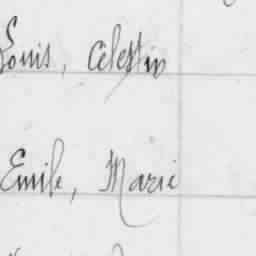 Louis, Célestin
Emile, Marie